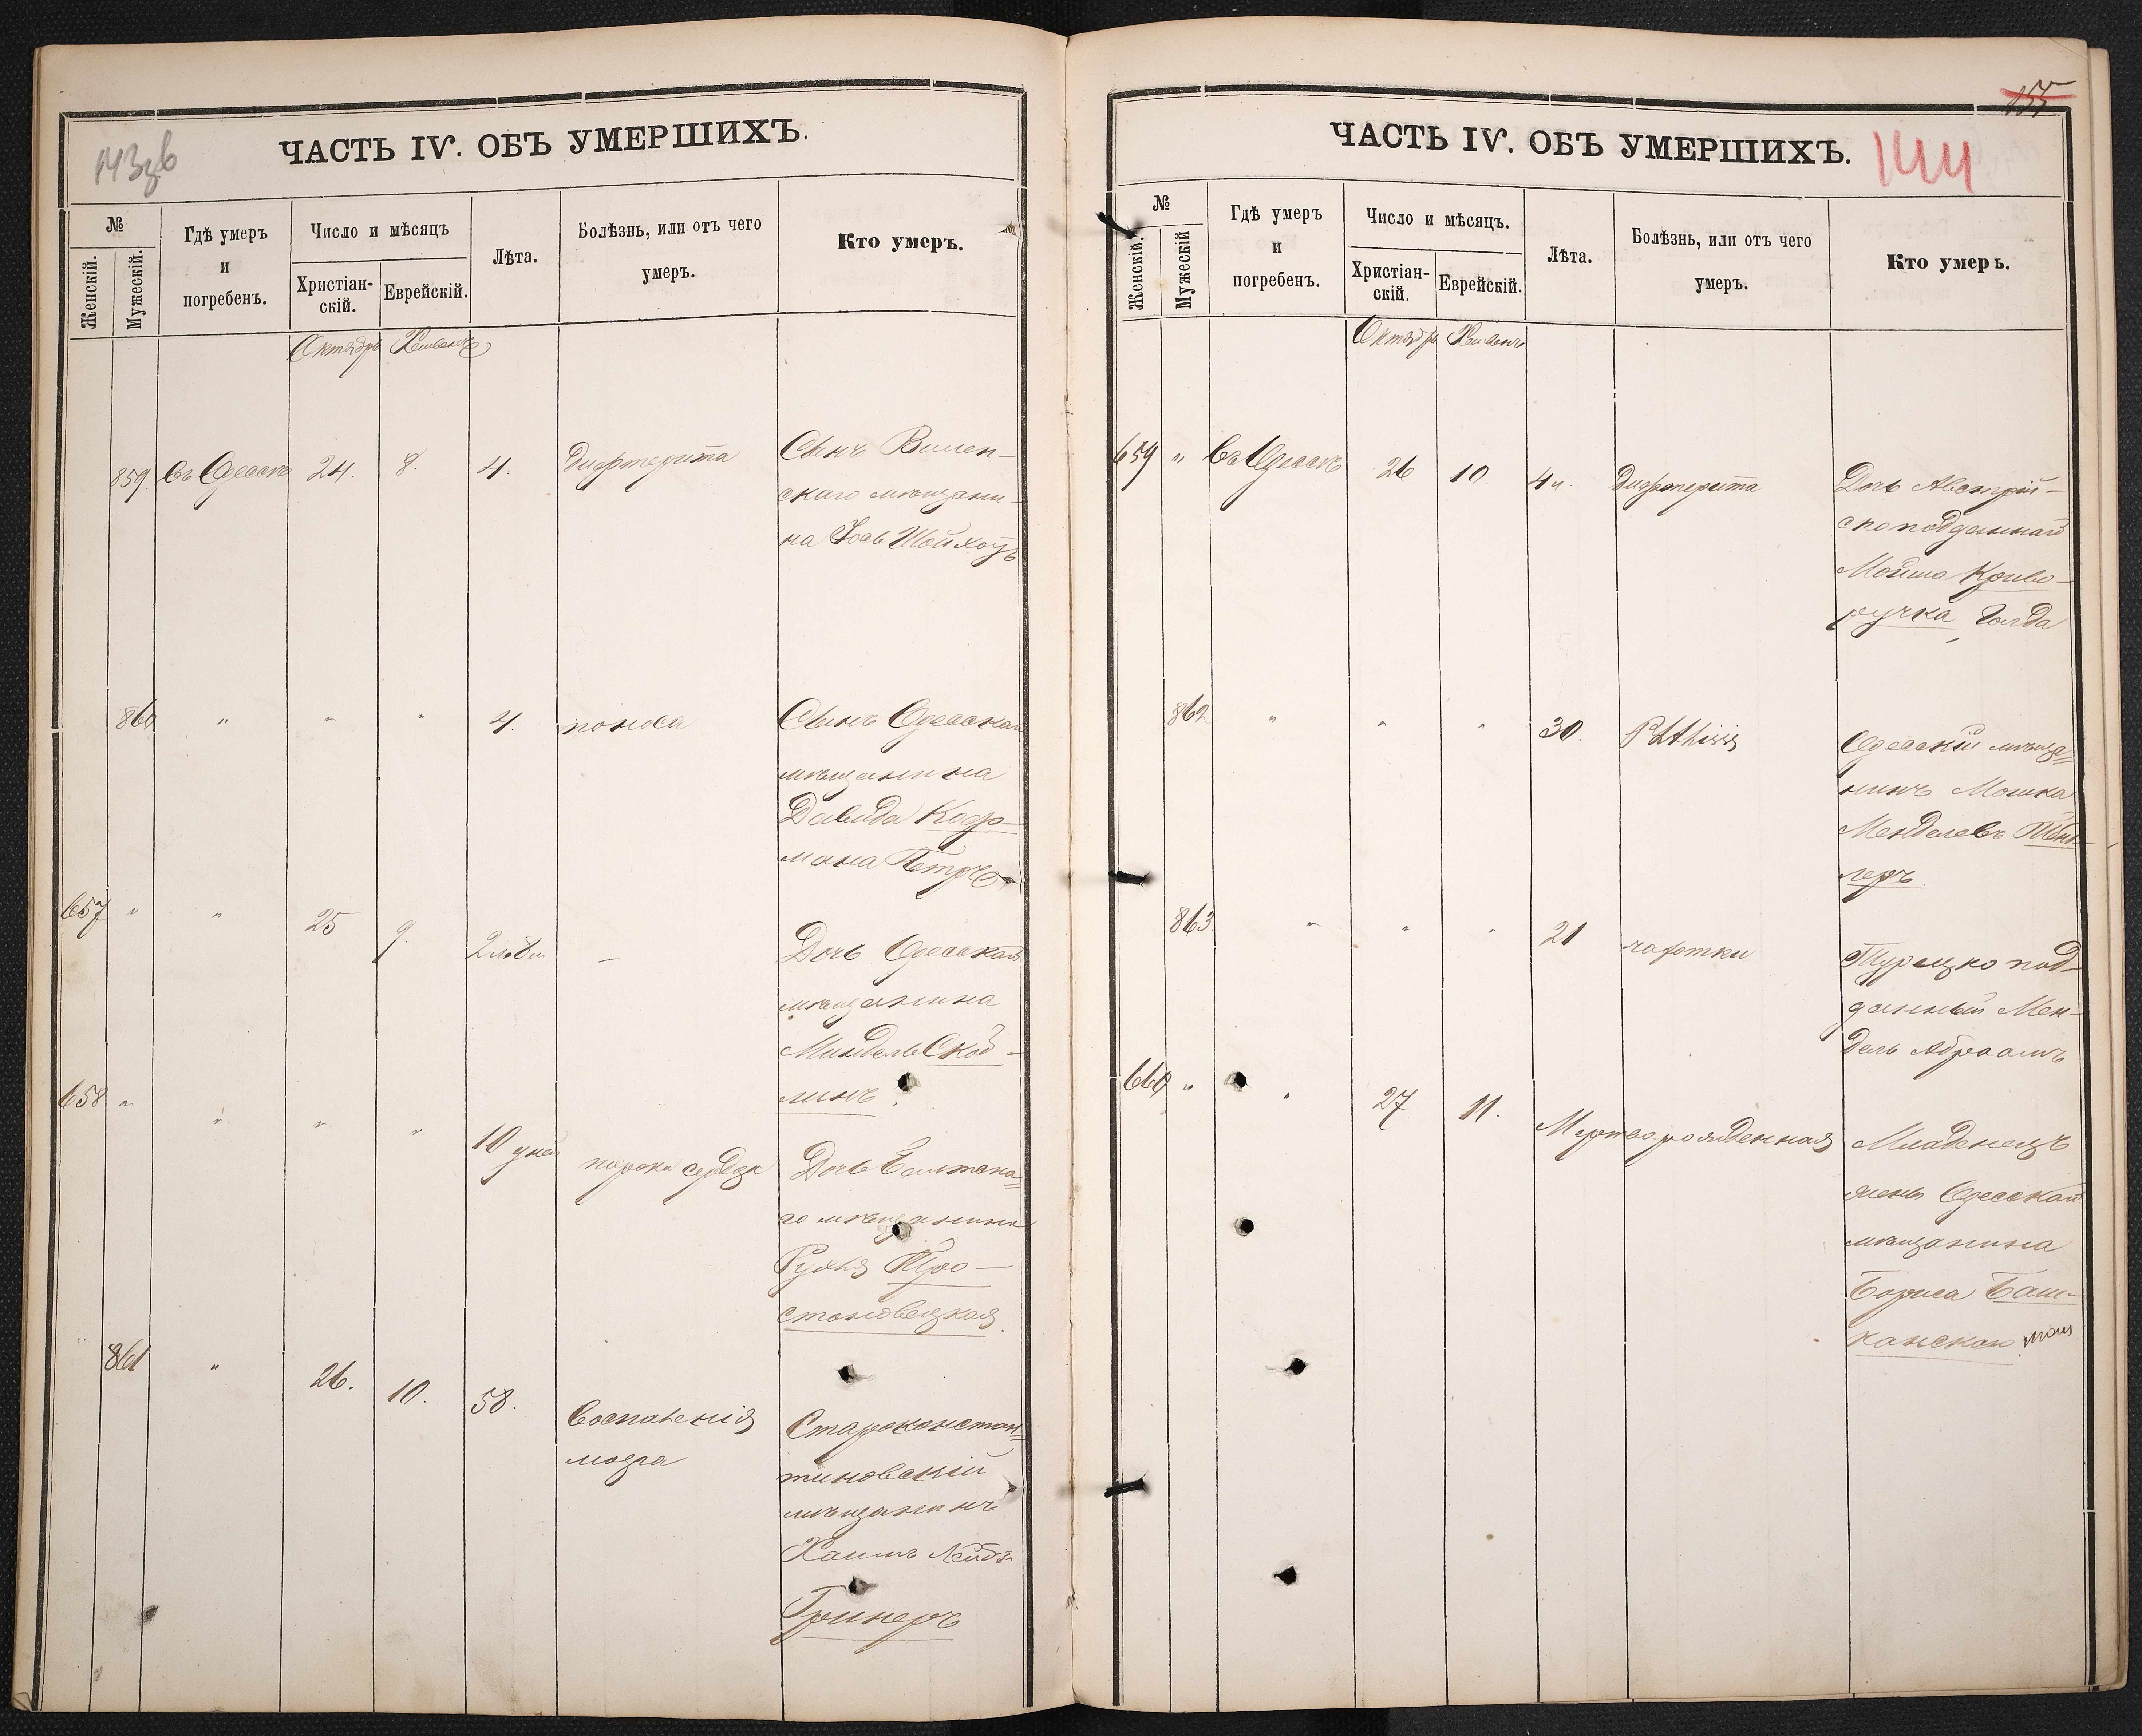 143 зв
ЧАСТЬ IV. ОБЪ УМЕРШИХЪ.
№
Женскій.
Мужескій.
Гдѣ умеръ
и
погребенъ.
Число и мѣсяцъ
Христіан-
скій.
Еврейскій.
Лѣта.
Болѣзнь, или отъ чего
умеръ.
Кто умеръ.
Октябрь Хешвенъ
859. Въ Одессѣ 24. 8. 4. Дифтерита
Сынъ Вилен-
скаго мѣщани-
на
860 " " " 4. поноса
Сынъ Одесскаго
мѣщанина
Давида Коф-
мана Петръ
657 " " 25 9. —
Дочь Одесскаго
мѣщанина
линъ
658 " " " " 10 дней порока сердца
Дочь Балтска-
го мѣщанина
Рухля
становецкая
861 " 26. 10. 58. Воспаленія
мозга
Староконстан-
тиновскій
мѣщанинъ
Хаимъ Лейбъ
Гринеръ
155
ЧАСТЬ IV. ОБЪ УМЕРШИХЪ.
144
№
Женскій.
Мужескій
Гдѣ умеръ
и
погребенъ.
Число и мѣсяцъ.
Христіан-
скій.
Еврейскій.
Лѣта.
Болѣзнь, или отъ чего
умеръ.
Кто умеръ.
Октябрь Хешвенъ
659 " Въ Одессѣ 26 10. Дифтерита
Дочь Австрій-
скоподданнаго
Мойше Криво-
ручка, Голда
862 " " " 30. Phthisis
Одесскій мѣща-
нинъ Мошка
Менделевъ
леръ
863 " " " 21 чахотки
Турецко под-
данный Мен-
дель Абрамъ
660 " " 27 11. Мертворожденная
Младенецъ
жены Одесскаго
мѣщанина
Бориса Баш-
канскаго